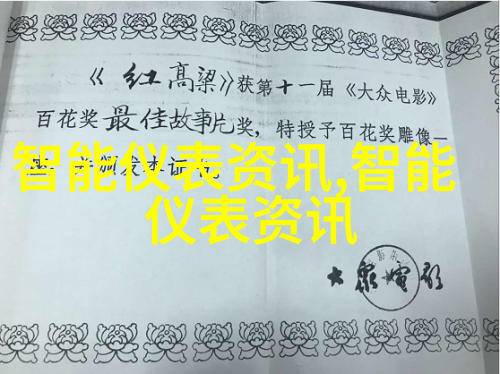 《红高粱》获第十一届《大众电影》
百花奖最佳故事片奖，特授予百花奖雕像一
并颁发本证书
智能仪表资讯,智能
仪表资讯
大众电影